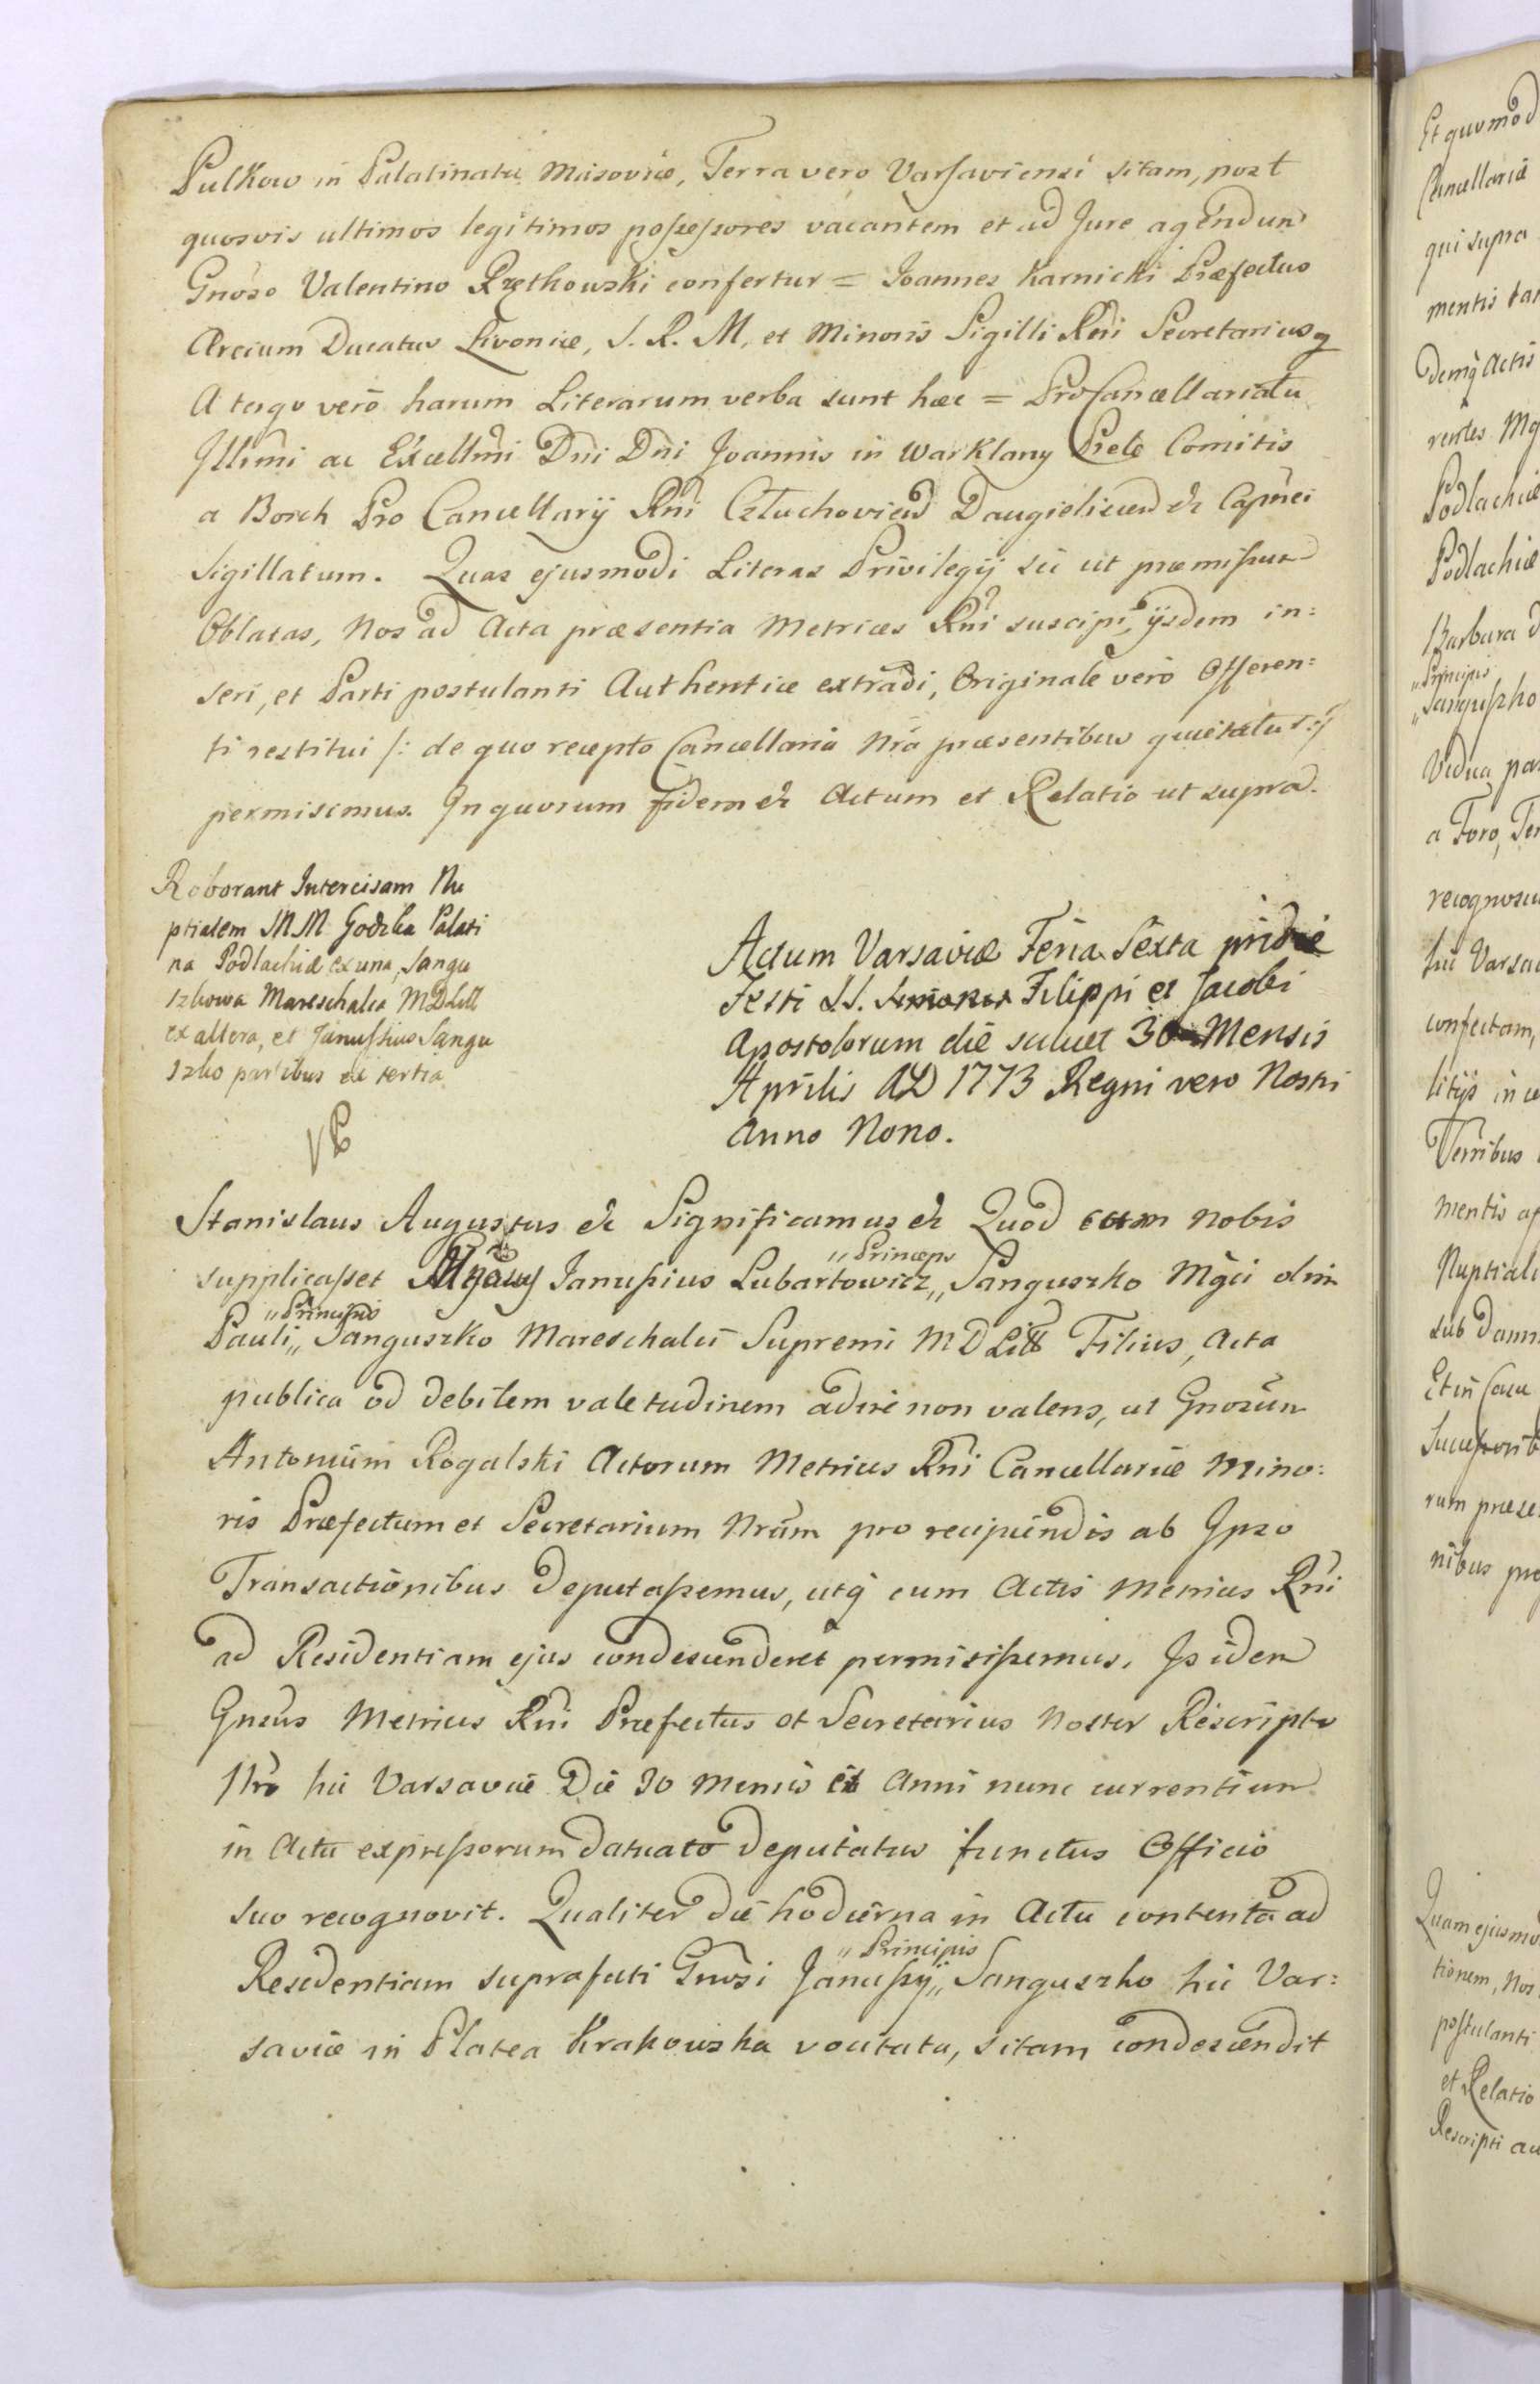 Pulkow in Palatinatu Masoviæ, Terra vero Varsaviensi sitam, post
quosvis ultimos legitimos possessores vacantem et ad Jure agendum
Gnoso Valentino Rzętkowski confertur = Joannes Karnicki Præfectus
Arcium Ducatus Livoniæ, S. R. M. et Minoris Sigilli Rni Secretarius
A tergo vero harum Literarum verba sunt hæc = ProCancellariatu
Illmi ac Excellmi Dni Dni Joannis in Warklany Prele Comitis
a Borch Pro Cancellarij Rni Człuchovien Daugielicen & Capnei
Sigillatum. Quas ejusmodi Literas Privilegij sic ut præmissum
Oblatas, Nos ad Acta præsentia Metrices Rni suscipi, ijsdem in=
seri, et Parti postulanti Authentice extradi, Originale vero Offeren=
ti restitui /: de quo recepto Cancellaria Nra præsentibus quietatur :/
permisimus. In quorum fidem & Actum et Relatio ut supra.
Roborant Intercisam Nu
ptialem MM Godzka Palati
na Podlachiæ ex una, Sangu
szkowa Mareschalca MDLitt
ex altera, et Janussius Sangu
szko partibus ex tertia
Actum Varsaviæ Feria Sexta pridie
Festi SS. Filippi et Jacobi
Apostolorum die scilicet 30 Mensis
Aprilis AD 1773 Regni vero Nostri
Anno Nono.
Stanislaus Augustus & Significamus & Quod cum nobis
"Princeps
supplicasset Janussius Lubartowicz,, Sanguszko Mgci olim
"Principis
Pauli,, Sanguszko Mareschalci Supremi MDLitt Filius, Acta
publica ob debilem valetudinem adire non valens, ut Gnosum
Antonium Rogalski Actorum Metrices Rni Cancellariæ Mino=
ris Præfectum et Secretarium Nrum pro recipiendis ab Ipso
Transactionibus deputassemus, utq cum Actis Metrices Rni
ad Residentiam ejus condescenderet permisissemus, Is idem
Gnsus Metrices Rni Præfectus et Secretarius Noster Rescripto
Nro hic Varsaviæ Die 30 Mensis et Anni nunc currentium
in Actu expressorum deputatus functus Officio
suo recognovit. Qualiter die hodierna in Actu contenta ad
"Principis
Residentiam suprafati Gnosi Janussij,, Sanguszko hic Var=
saviæ in Platea Krakowska vocitata, sitam condescendit
Et quomod
Cancellariæ
qui supra
mentis
Actis
Podlachiæ
Podlachiæ
Barbara
"Principis
"Sanguszko
Vidua
a Foro, Ter
recognosc
hic Varsa
confectam,
litijs in
Verribus
mentis
Nuptiali
sub damn
Et in Casu
rum præse
nibus
Quam ejusmo
tionem, Nos
postulanti
et Relatio
Rescripti au